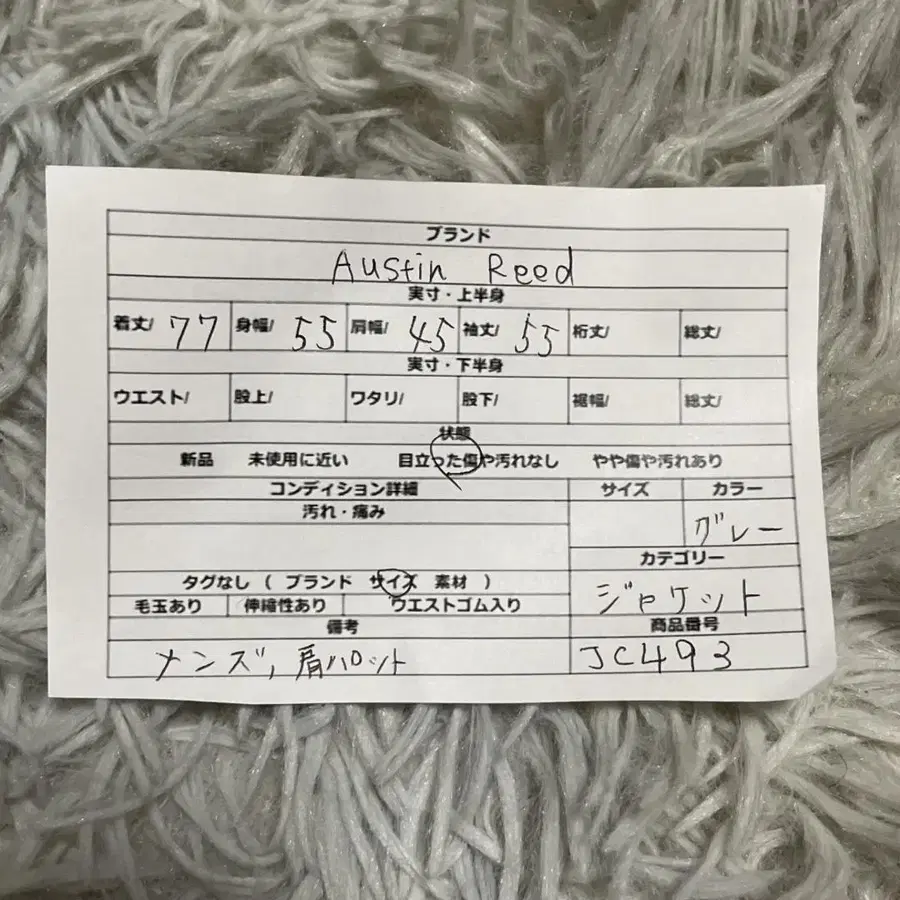 ブランド
Austin Reed
実寸・上半身
着丈/ 77 身幅/ 55 肩幅/ 45 袖丈/ 55 裄丈/ 総丈/
実寸・下半身
ウエスト/ 股上/ ワタリ/ 股下/ 裾幅/ 総丈/
状態
新品 未使用に近い 目立った傷や汚れなし やや傷や汚れあり
コンディション詳細 サイズ カラー
汚れ・痛み
グレー
カテゴリー
タグなし ( ブランド サイズ 素材 )
ジャケット
毛玉あり 伸縮性あり ウエストゴム入り
備考 商品番号
メンズ, 肩パット JC493